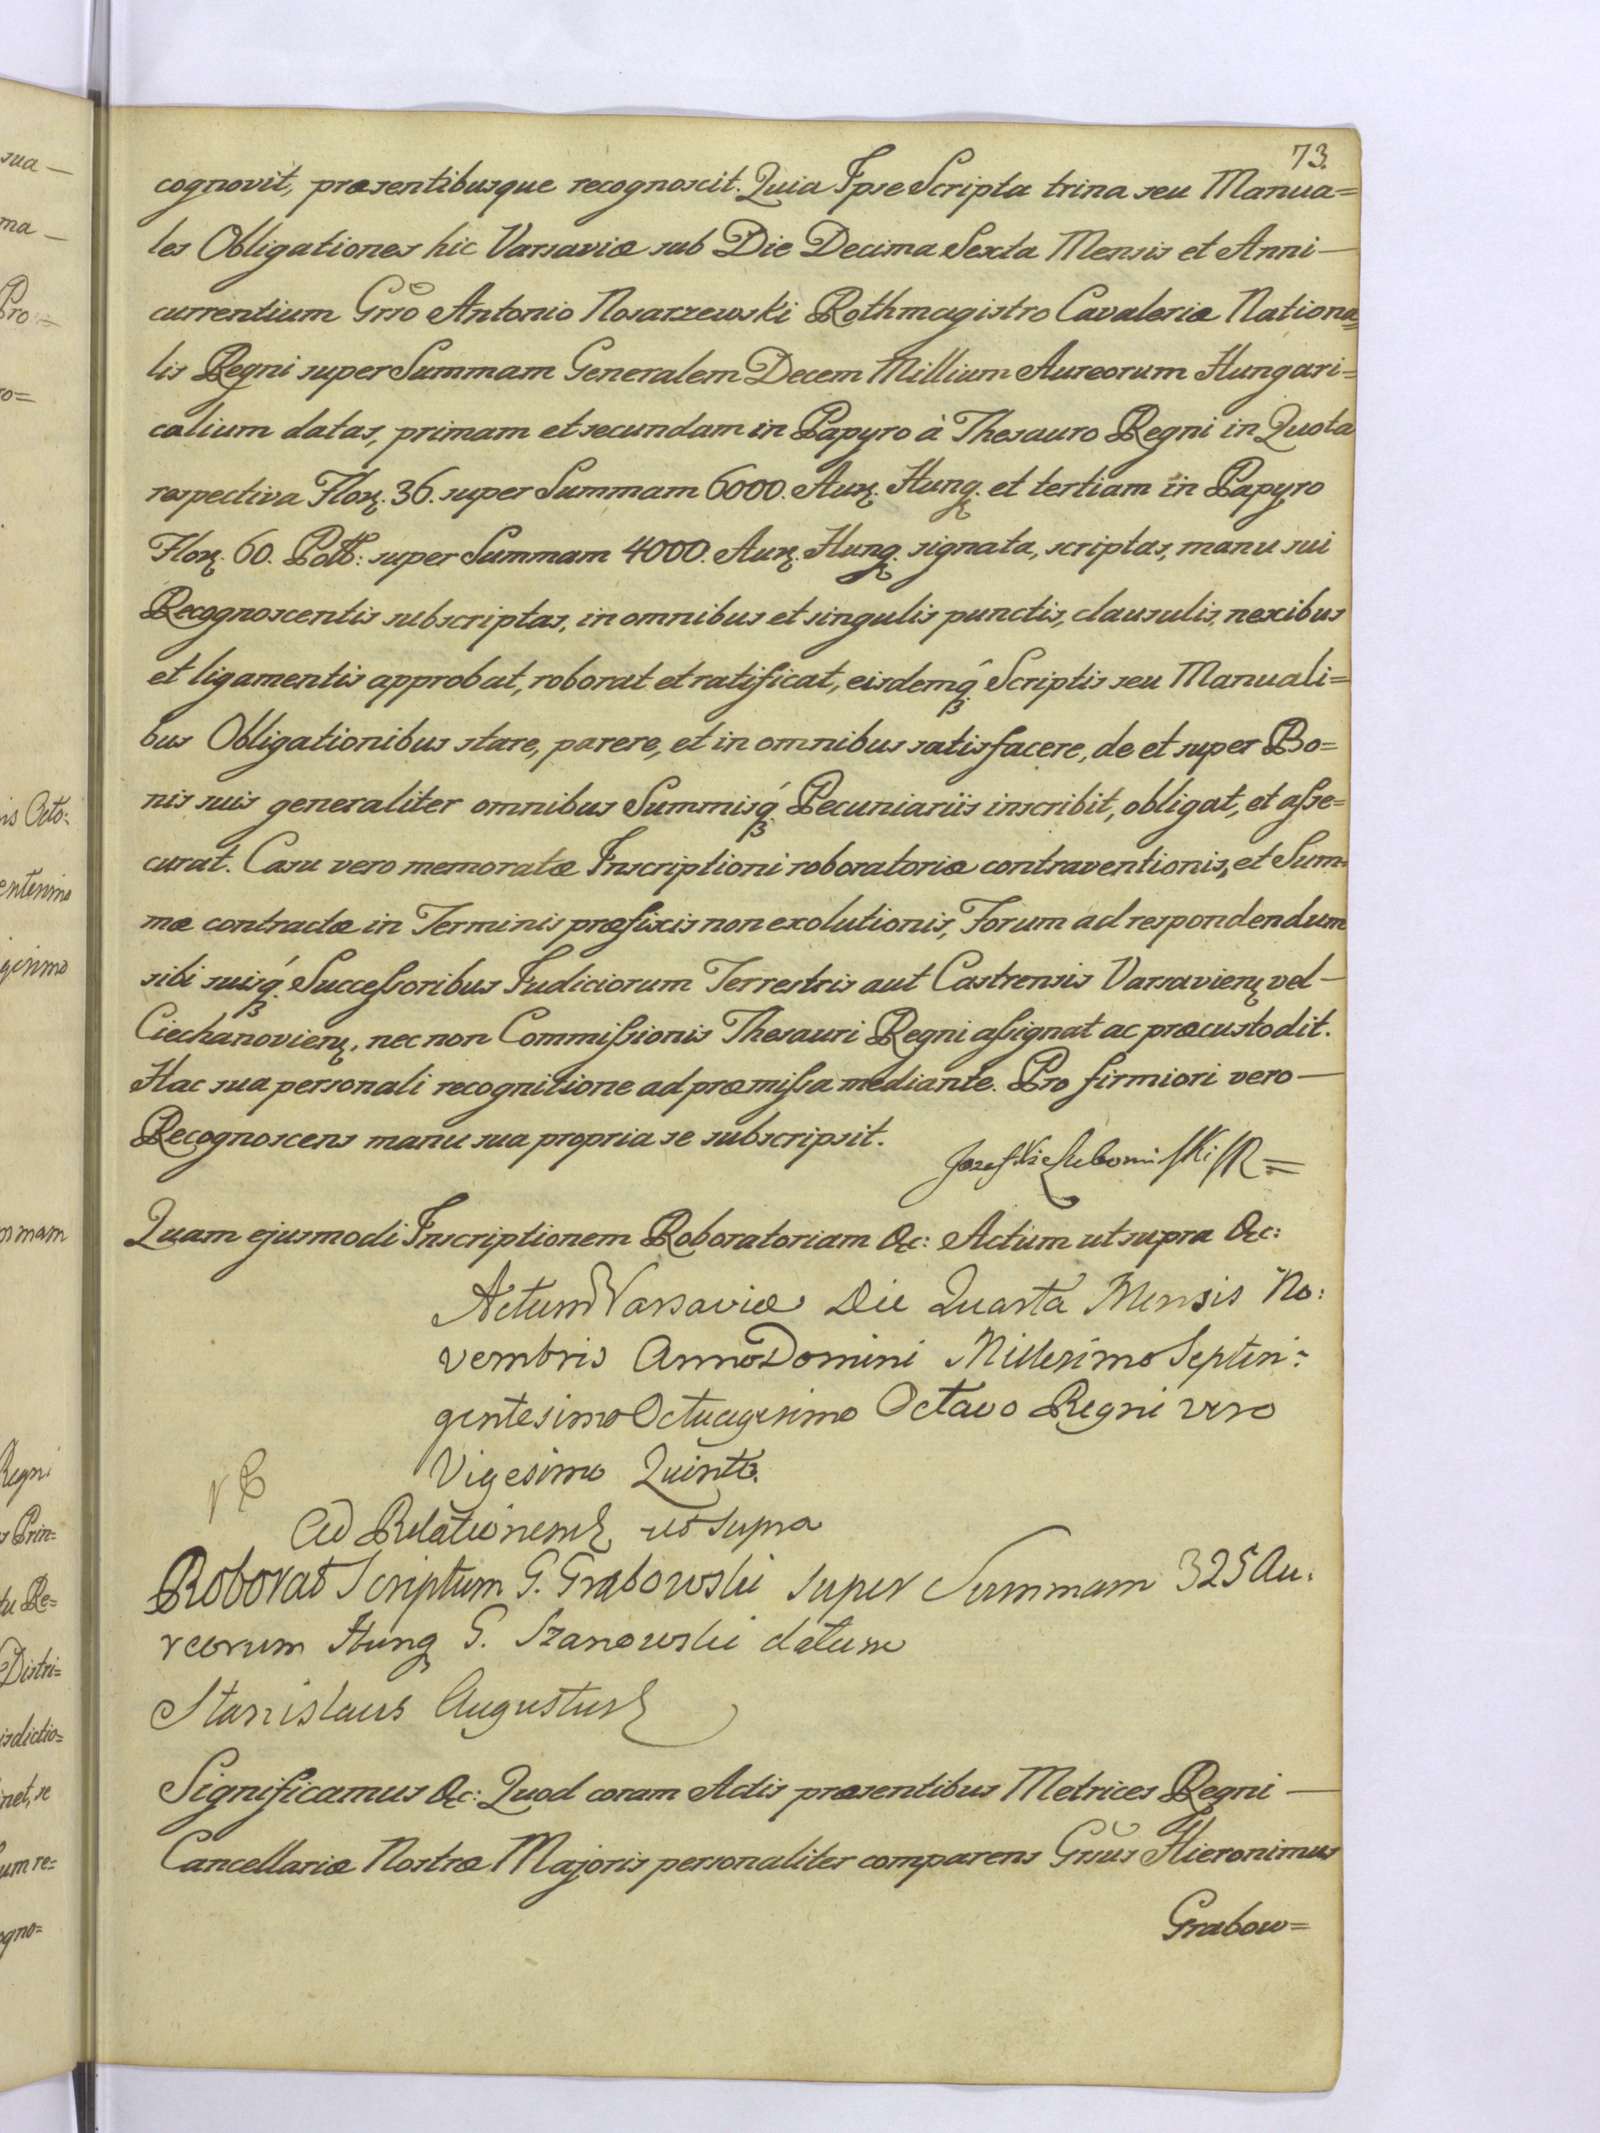 73.
cognovit, præsentibusque recognoscit. Quia Ipse Scripta trina seu Manua=
les Obligationes hic Varsaviæ sub Die Decima Sexta Mensis et Anni —
currentium Grso Antonio Nosarzewski Rothmagistro Cavaleriæ Nationa=
lis Regni super Summam Generalem Decem Millium Aureorum Hungari=
calium datas, primam et secundam in Papyro à Thesauro Regni in Quota
respectiva Flor. 36. super Summam 6000. Aur. Hung. et tertiam in Papyro
Flor. 60. Poll: super Summam 4000. Aur. Hung. signata, scriptas, manu sui
Recognoscentis subscriptas, in omnibus et singulis punctis, clausulis, nexibus
et ligamentis approbat, roborat et ratificat, eisdemq́ Scriptis seu Manuali=
bus Obligationibus stare, parere, et in omnibus satisfacere, de et super Bo=
nis suis generaliter omnibus Summisq́ Pecuniariis inscribit, obligat, et asse=
curat. Casu vero memoratæ Inscriptioni roboratoriæ contraventionis, et Sum=
mæ contractæ in Terminis præfixis non exolutionis, Forum ad respondendum
sibi suisq́ Successoribus Judiciorum Terrestris aut Castrensis Varsavien vel —
Ciechanovien, nec non Commissionis Thesauri Regni assignat ac præcustodit.
Hac sua personali recognitione ad præmissa mediante. Pro firmiori vero —
Recognoscens manu sua propria se subscripsit.
Jozef Xie Lubomirski
Quam ejusmodi Inscriptionem Roboratoriam &c: Actum ut supra &c:
Actum Varsaviæ Die Quarta Mensis No:
vembris Anno Domini Millesimo Septin:
gentesimo Octuagesimo Octavo Regni vero
Vigesimo Quinto.
Ad Relationem ut supra
Roborat Scriptum G. Grabowski super Summam 325 Au:
reorum Hung G. Szanowski datum
Stanislaus Augustus
Significamus &c: Quod coram Actis præsentibus Metrices Regni —
Cancellariæ Nostræ Majoris personaliter comparens Grsus Hieronimus
Grabow=